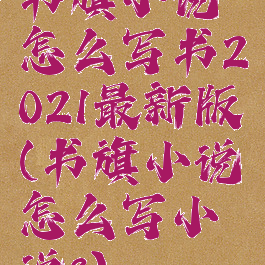 书旗小说
怎么写书2
021最新版
(书旗小说
怎么写小
说?)